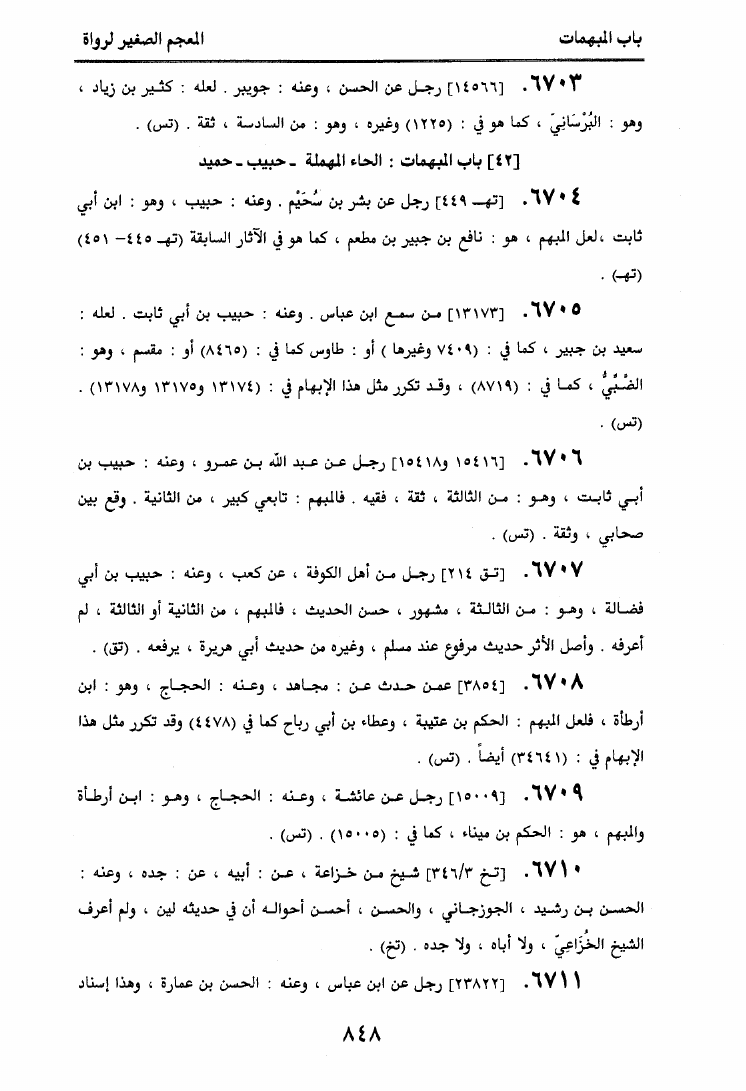 باب المبهمات
المعجم الصغير لرواة
٦٧٠٣. [١٤٥٦٦] رجل عن الحسن ، وعنه : جويبر . لعله : كثير بن زياد ،
وهو : البُرْسَانِيّ ، كما هو في : (١٢٢٥) وغيره ، وهو : من السادسة ، ثقة . (تس) .
[٤٢] باب المبهمات : الحاء المهملة - حبيب - حميد
٦٧٠٤. [تهـ ٤٤٩] رجل عن بشر بن سُحَيْم . وعنه : حبيب ، وهو : ابن أبي
ثابت ،لعل المبهم ، هو : نافع بن جبير بن مطعم ، كما هو في الآثار السابقة (تهـ ٤٤٥- ٤٥١)
(تهـ) .
٦٧٠٥. [١٣١٧٣] من سمع ابن عباس . وعنه : حبيب بن أبي ثابت . لعله :
سعيد بن جبير ، كما في : (٧٤٠٩ وغيرها ) أو : طاوس كما في : (٨٤٦٥) أو : مقسم ، وهو :
الضَّبِّيُّ ، كما في : (٨٧١٩) ، وقد تكرر مثل هذا الإبهام في : (١٣١٧٤ و١٣١٧٥ و١٣١٧٨) .
(تس) .
٦٧٠٦. [١٥٤١٦ و١٥٤١٨] رجل عن عبد الله بن عمرو ، وعنه : حبيب بن
أبي ثابت ، وهو : من الثالثة ، ثقة ، فقيه . فالمبهم : تابعي كبير ، من الثانية . وقع بين
صحابي ، وثقة . (تس) .
٦٧٠٧. [تق ٢١٤] رجل من أهل الكوفة ، عن كعب ، وعنه : حبيب بن أبي
فضالة ، وهو : من الثالثة ، مشهور ، حسن الحديث ، فالمبهم ، من الثانية أو الثالثة ، لم
أعرفه . وأصل الأثر حديث مرفوع عند مسلم ، وغيره من حديث أبي هريرة ، يرفعه . (تق) .
٦٧٠٨. [٣٨٥٤] عمن حدث عن : مجاهد ، وعنه : الحجاج ، وهو : ابن
أرطأة ، فلعل المبهم : الحكم بن عتيبة ، وعطاء بن أبي رباح كما في (٤٤٧٨) وقد تكرر مثل هذا
الإبهام في : (٣٤٦٤١) أيضاً . (تس) .
٦٧٠٩. [١٥٠٠٩] رجل عن عائشة ، وعنه : الحجاج ، وهو : ابن أرطأة
والمبهم ، هو : الحكم بن ميناء ، كما في : (١٥٠٠٥) . (تس) .
٦٧١٠. [تخ ٣٤٦/٣] شيخ من خزاعة ، عن : أبيه ، عن : جده ، وعنه :
الحسن بن رشيد ، الجوزجاني ، والحسن ، أحسن أحواله أن في حديثه لين ، ولم أعرف
الشيخ الخُزَاعِيّ ، ولا أباه ، ولا جده . (تخ) .
٦٧١١. [٢٣٨٢٢] رجل عن ابن عباس ، وعنه : الحسن بن عمارة ، وهذا إسناد
٨٤٨